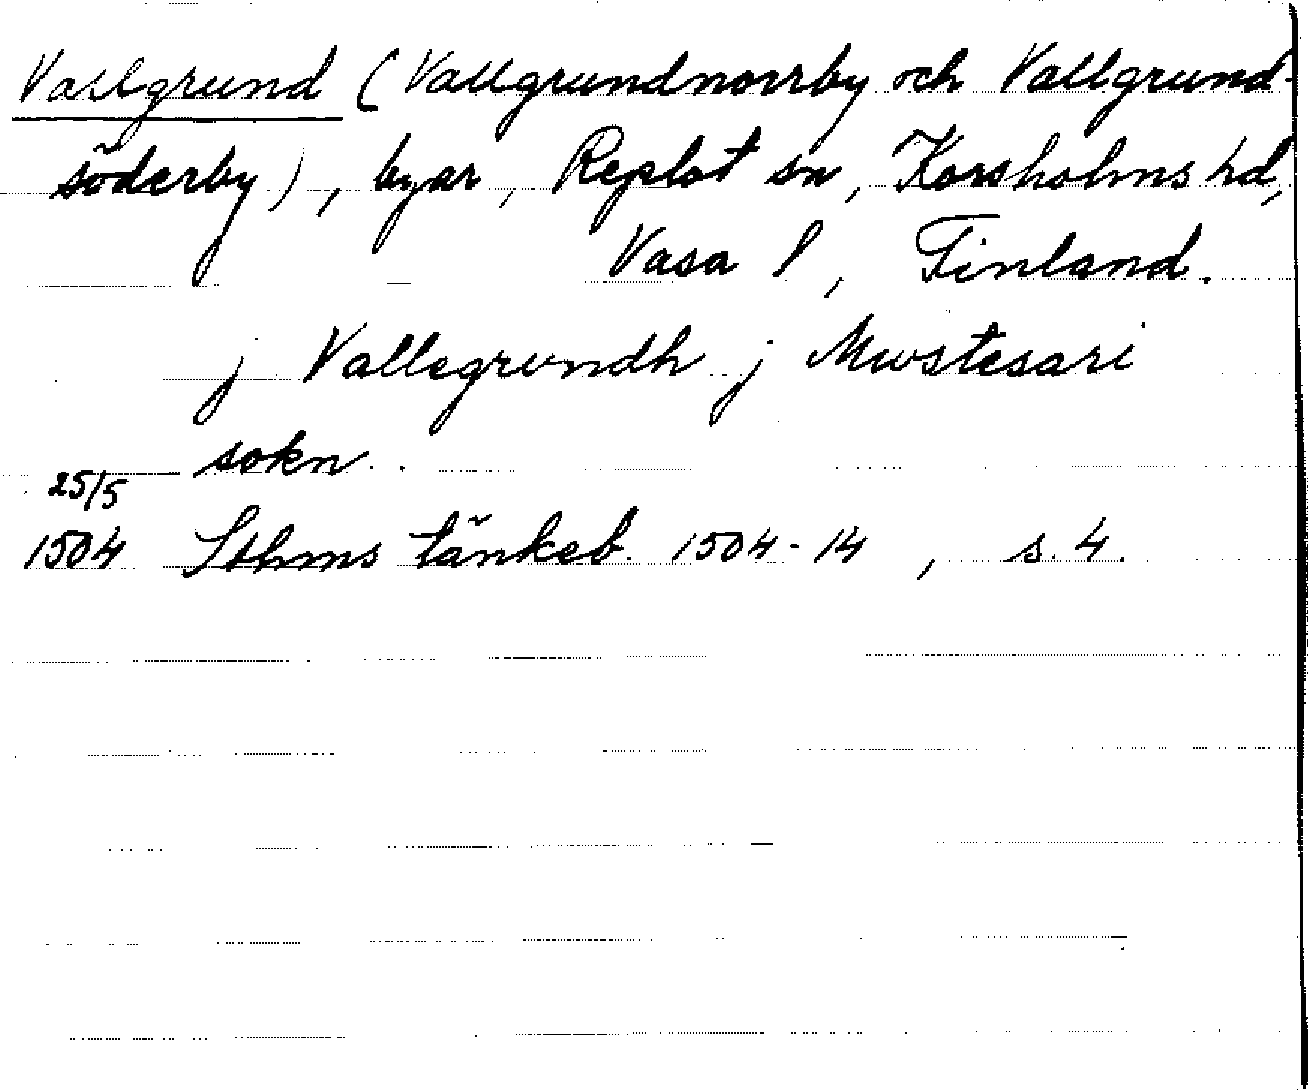 Vallgrund (Vallgrundnorrby och Vallgrund-
söderby), byar, Replot sn, Korsholms hd,
Vasa l, Finland.
j Vallegrundh j Mwstesari
sokn.
25/5
1504 Sthms tänkeb. 1504-14, s. 4.